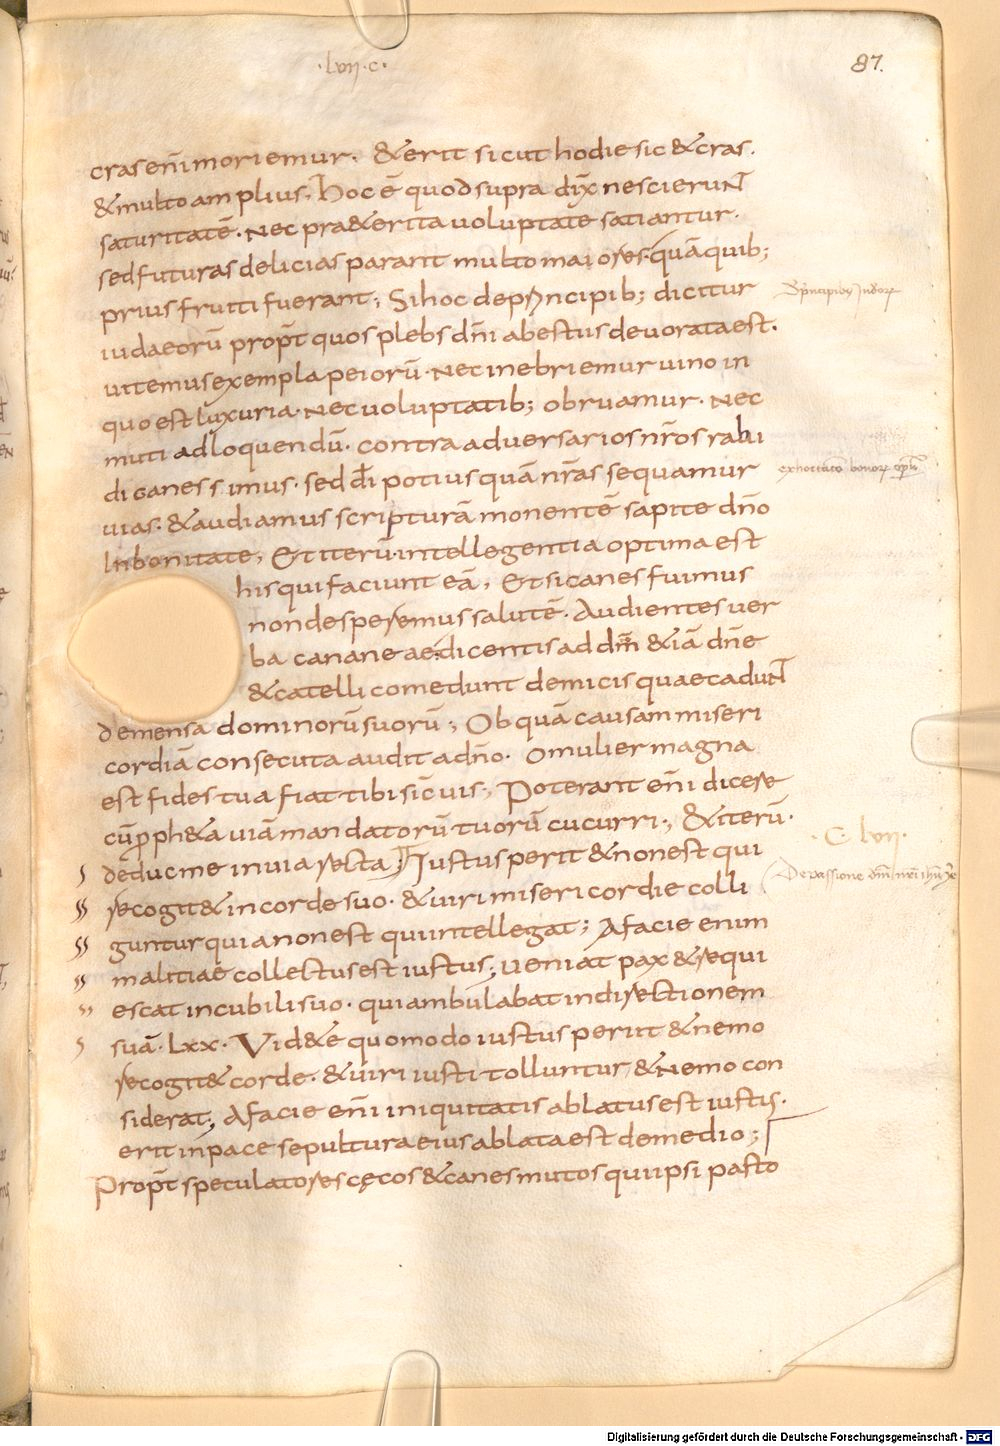 ·lvii·c·
87.
cras eni̅ moriemur. &erit sicut hodie sic &cras.
&multo amplius; Hoc e̅ quod supra dix̅ nescierunt
saturitate̅. Nec pra&erita uoluptate satiantur.
sed futuras delicias parant multo maiores quā quib;
prius fruiti fuerant; Si hoc deprincipib; dicitur
iudaeorū prop̅t quos plebs dn̅i abestiis deuorata est.
uitemus exempla peiorū. Nec inebriemur uino in
quo est luxuria. Nec uoluptatib; obruamur. Nec
muti adloquendū. contra aduersarios nr̅os rabi
di canes simus. sed dī potius quā nr̅as sequamur
uias. &audiamus scripturā monentē sapite dn̅o
In bonitate; Et iterū. intellegentia optima est
his qui faciunt eā; Et si canes fuimus
non desperemus salutē. Audientes uer
ba cananeae dicentis ad dm̅ &iā dn̅e
&catelli comedunt demicis quae cadunt
demensa dominorū suorū; Ob quā causam miseri
cordiā consecuta audit adn̅o. O mulier magna
est fides tua fiat tibi sic̅ uis; Poterant eni̅ dicere
cū proph&a uiā mandatorū tuorū cucurri; &iterū.
deduc me in uia recta; Iustus perit &non est qui
recogit& in corde suo. &uiri misericordie colli
guntur quia non est qui intellegat; A facie enim
malitiae collectus est iustus; ueniat pax &requi
escat in cubili suo. qui ambulabat in directionem
suā. Lxx. Vid&e quomodo iustus periit &nemo
recogit& corde. &uiri iusti tolluntur &nemo con
siderat; A facie eni̅ iniquitatis ablatus est iustis.
erit in pace sepultura eius ablata est demedio;
Prop̅t speculatores cęcos &canes mutos qui ipsi pasto
exhortatio bonorum
·C· lvii·
De passione dn̅i nr̅i
Digitalisierung gefördert durch die Deutsche Forschungsgemeinschaft - DFG